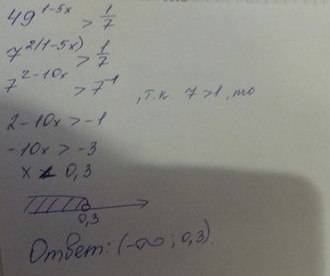 49^(1-5x) > 1/7
7^(2(1-5x)) > 1/7
7^(2-10x) > 7^(-1) , т.к 7>1, то
2-10x > -1
-10x > -3
x < 0,3
0,3
Ответ: (-∞; 0,3).